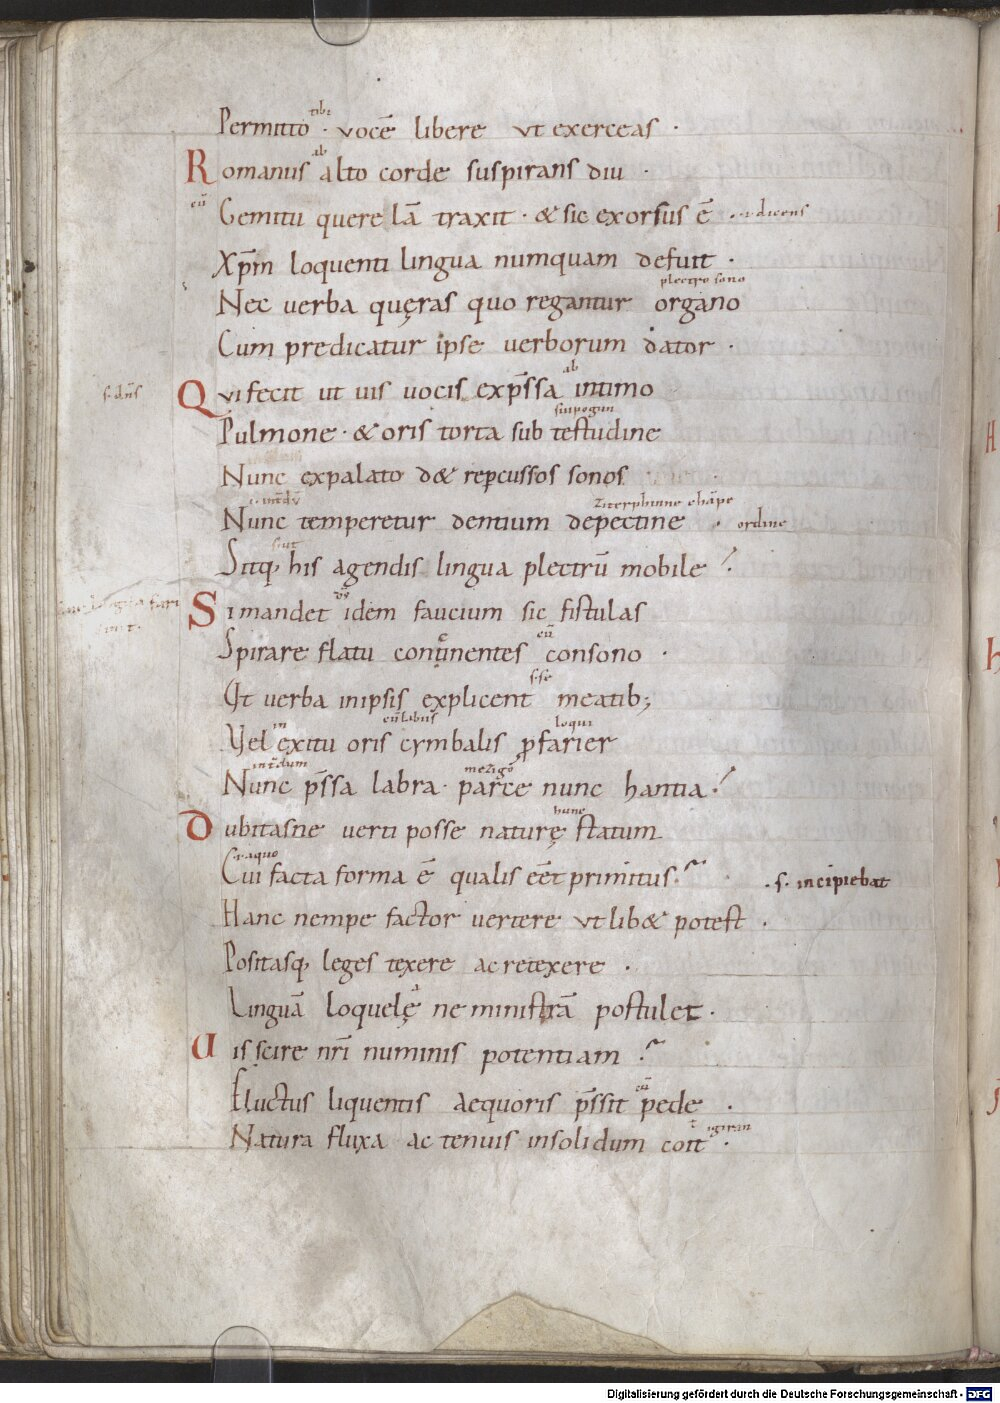 tibi
Permitto · vocē libere vt exerceas ·
ab
Romanus alto corde suspirans diu ·
cū Gemitu querelā traxit · & sic exorsus ē · dicens
Xp̄m loquenti lingua numquam defuit ·
plectro sono
Nec verba quęras quo regantur organo
Cum predicatur ipse verborum dator ·
ab
s. dn̄s Qui fecit ut uis uocis exp̄ssa intimo
Pulmone · & oris torta sub testudine
Nunc expalato d& repcussos sonos
Nunc temperetur dentium depectine · ordine
sint
Sitq; his agendis lingua plectrū mobile ?
Si mandet idem faucium sic fistulas
cū
Spirare flatu continentes consono ·
s. se
Vt verba inipsis explicent meatib;
in loqui
Vel exitu oris cymbalis ꝓfarier
Nunc p̄ssa labra · parce nunc hantia ?
hunc
Dubitasne uerti posse naturę statum
s. a quo
Cui facta forma ē qualis eēt primitus ? · s. incipiebat
Hanc nempe factor uertere vt lib& potest ·
Positasq; leges texere ac retexere ·
Linguā loquelę ne ministrā postulet ·
Uis scire nr̄i numinis potentiam ?
cū
Fluctus liquentis aequoris p̄ssit pede ·
Natura fluxa ac tenuis insolidum coit ·
Digitalisierung gefördert durch die Deutsche Forschungsgemeinschaft - DFG